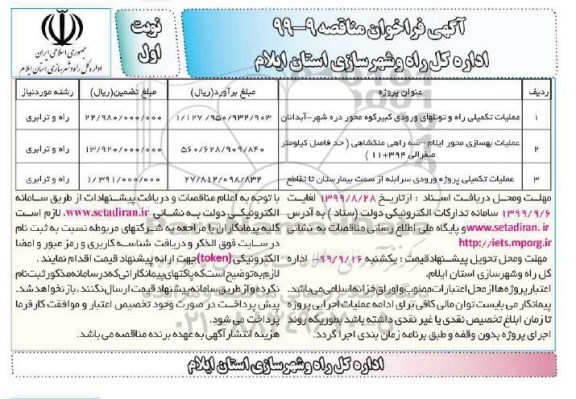 آگهی فراخوان مناقصه ۹-۹۹
اداره کل راه وشهرسازی استان ایلام
نوبت
اول
جمهوری اسلامی ایران
اداره کل راه و شهرسازی استان ایلام
ردیف عنوان پروژه مبلغ برآورد(ریال) مبلغ تضمین(ریال) رشته موردنیاز
۱ عملیات تکمیلی راه و تونلهای ورودی کبیرکوه محور دره شهر-آبدانان ۱/۱۲۷/۹۵۰/۹۳۲/۹۰۳ ۲۲/۹۸۰/۰۰۰/۰۰۰ راه و ترابری
۲ عملیات بهسازی محور ایلام -سه راهی ملکشاهی ( حد فاصل کیلومتر
صفرالی ۳۹۴+۱۱) ۵۶۰/۶۲۸/۹۰۹/۸۴۰ ۱۳/۹۲۰/۰۰۰/۰۰۰ راه و ترابری
۳ عملیات تکمیلی پروژه ورودی سرابله از سمت بیمارستان تا تقاطع ۲۷/۸۱۲/۰۹۸/۸۳۲ ۱/۳۹۱/۰۰۰/۰۰۰ راه و ترابری
مهلت ومحل دریافت اسناد : ازتاریخ ۱۳۹۹/۸/۲۸ لغایت
۱۳۹۹/۹/۶ سامانه تدارکات الکترونیکی دولت (ستاد ) به آدرس
www.setadiran.ir و پایگاه ملی اطلاع رسانی مناقصات به نشانی
http://iets.mporg.ir
مهلت ومحل تحویل پیشنهادقیمت : یکشنبه ۹۹/۹/۱۶- اداره
کل راه وشهرسازی استان ایلام.
اعتبارپروژه هاازمحل اعتبارات مصوب واوراق خزانه اسلامی می باشد.
پیمانکار می بایست توان مالی کافی برای ادامه عملیات اجرایی پروژه
تا زمان ابلاغ تخصیص نقدی یا غیر نقدی داشته باشد بطوریکه روند
اجرای پروژه بدون وقفه و طبق برنامه زمان بندی اجرا گردد.
با توجه به اعلام مناقصات و دریافت پیشنهادات از طریق سامانه
الکترونیکی دولت به نشانی www.setadiran.ir، لازم است
کلیه پیمانکاران با مراجعه به شرکتهای مربوطه نسبت به ثبت نام
در سایت فوق الذکر و دریافت شناسه کاربری و رمز عبور و امضا
الکترونیکی (token)جهت ارائه پیشنهاد قیمت اقدام نمایند .
لازم به توضیح است که پکتهای پیمانکارانی که درسامانه مذکور ثبت نام
نکرده و از طریق سامانه پیشنهاد قیمت ارسال نکنند ، باز نخواهد شد.
پیش پرداخت در صورت وجود تخصیص اعتبار و موافقت کارفرما
پرداخت می شود.
هزینه انتشار آگهی به عهده برنده مناقصه می باشد.
اداره کل راه وشهرسازی استان ایلام